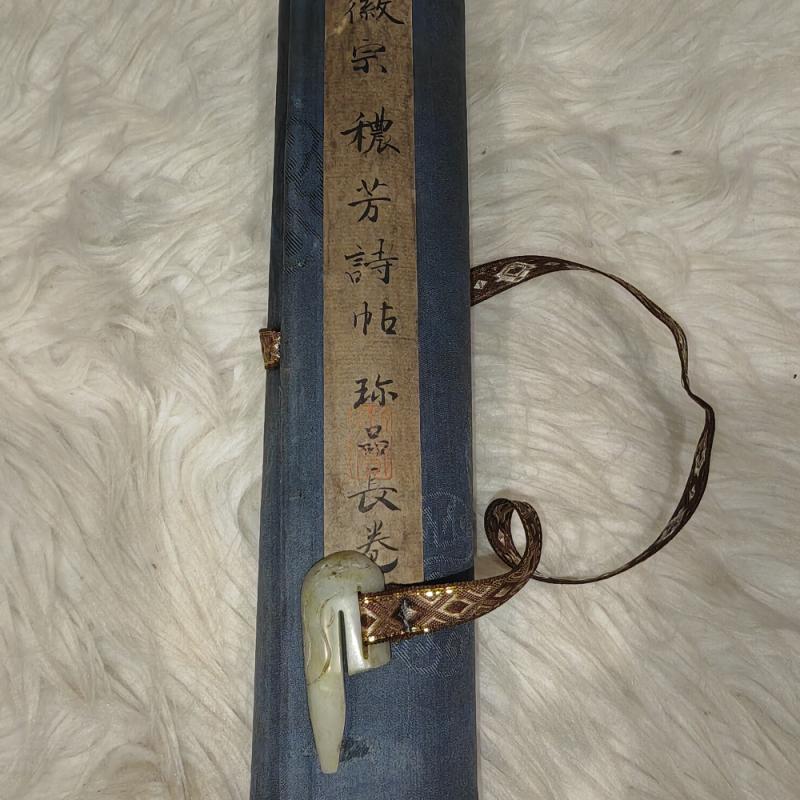 徽宗 穠芳詩帖 珎品長卷